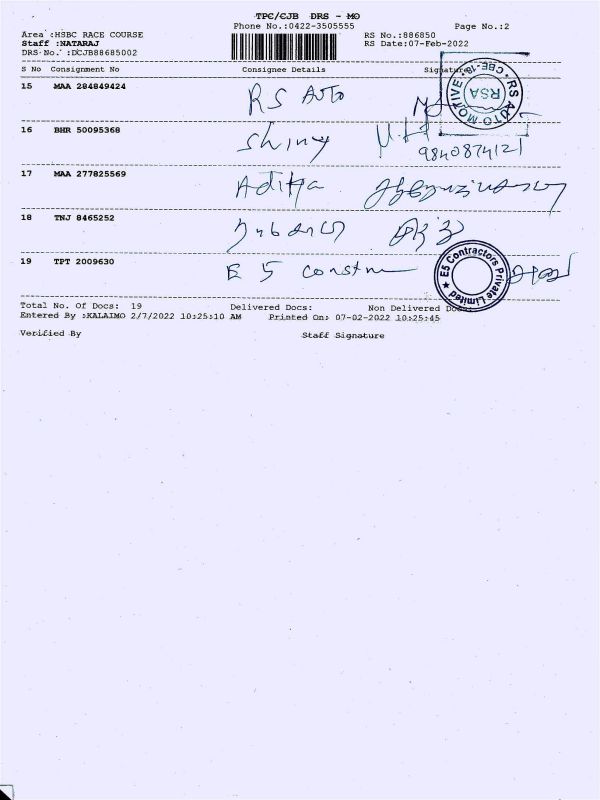 TPC/CJB DRS - MO
Phone No.:0422-3505555 Page No.:2
Area :HSBC RACE COURSE RS No.:886850
Staff :NATARAJ RS Date:07-Feb-2022
DRS-No. :DCJB88685002
S No Consignment No Consignee Details Signature
15 MAA 284849424 RS Auto
RS AUTOMOTIVE CBE-18. RSA
16 BHR 50095368 Shiny
9840874121
17 MAA 277825569 Aditya
18 TNJ 8465252
19 TPT 2009630 E 5 constn
E5 Contractors Private Limited ★
Total No. Of Docs: 19 Delivered Docs: Non Delivered Docs:
Entered By :KALAIMO 2/7/2022 10:25:10 AM Printed On: 07-02-2022 10:25:45
Verified By Staff Signature